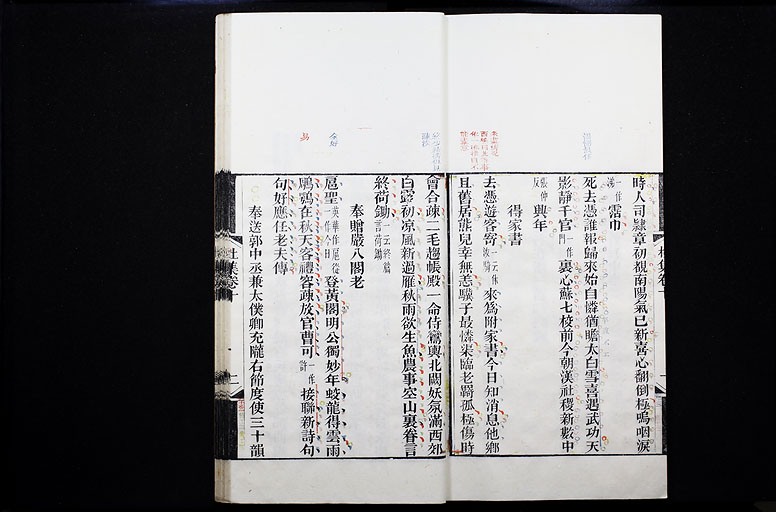 時人司隸章初覩南陽氣已新喜心翻倒極嗚咽淚
一作
霑巾
死去憑誰報歸來始自憐猶瞻太白雪喜遇武功天
影靜千官一作門裏心蘇七校前今朝漢社稷新數中
興年
得家書
去憑遊客寄一云來爲附家書今日知消息他鄉
且舊居熊兒幸無恙驥子最憐渠臨老羇孤極傷時
會合疎二毛趨帳殿一命侍鸞輿北闕妖氛滿西郊
白露初凉風新過雁秋雨欲生魚農事空山裏眷言
終荷鋤一云終篇言荷鋤
奉贈嚴八閣老
扈聖英華作扈從一作今日登黃閣明公獨妙年蛟龍得雲雨
鵰鶚在秋天客禮容疎放官曹可一作許接聯新詩句
句好應任老夫傳
奉送郭中丞兼太僕卿充隴右節度使三十韻
杜集卷十